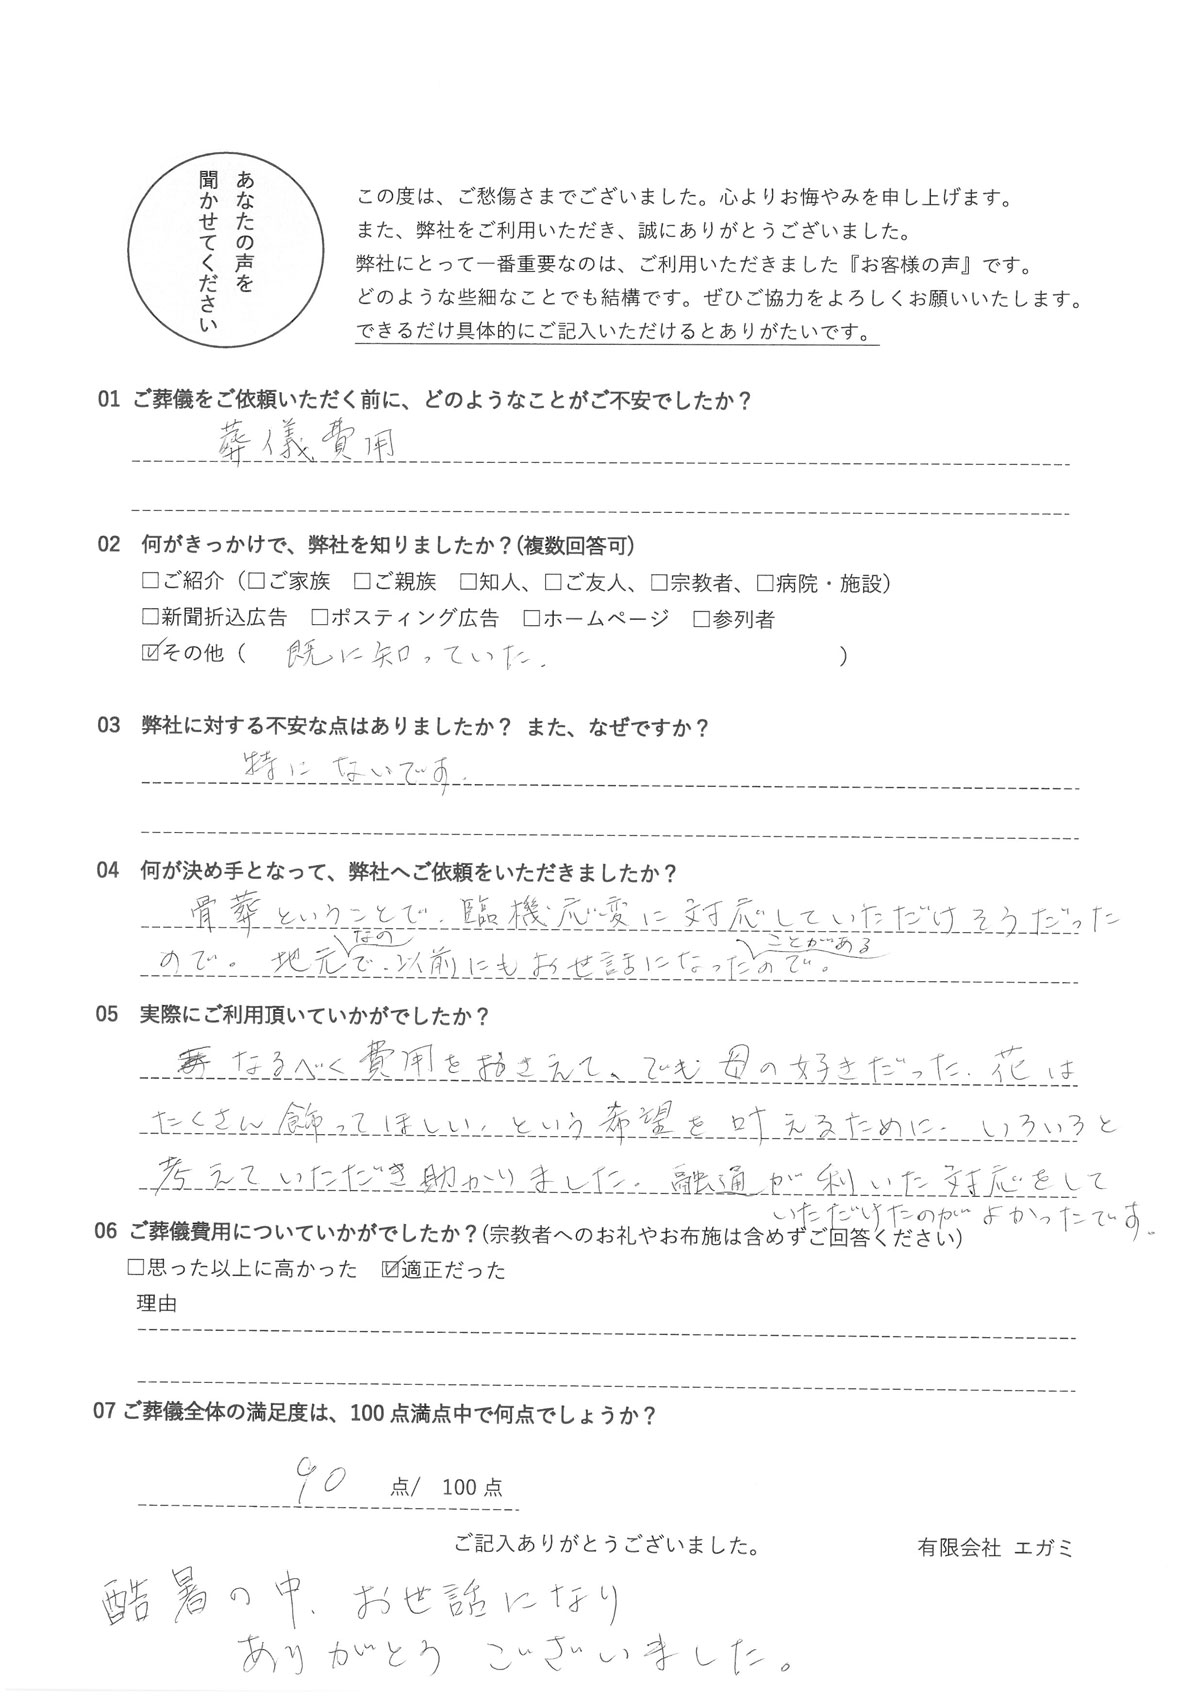 あなたの声を
聞かせてください
この度は、ご愁傷さまでございました。心よりお悔やみを申し上げます。
また、弊社をご利用いただき、誠にありがとうございました。
弊社にとって一番重要なのは、ご利用いただきました『お客様の声』です。
どのような些細なことでも結構です。ぜひご協力をよろしくお願いいたします。
できるだけ具体的にご記入いただけるとありがたいです。
01 ご葬儀をご依頼いただく前に、どのようなことがご不安でしたか？
葬儀費用
02 何がきっかけで、弊社を知りましたか？(複数回答可)
□ご紹介（□ご家族 □ご親族 □知人、□ご友人、□宗教者、□病院・施設）
□新聞折込広告 □ポスティング広告 □ホームページ □参列者
☑その他（ 既に知っていた. ）
03 弊社に対する不安な点はありましたか？ また、なぜですか？
特にないです.
04 何が決め手となって、弊社へご依頼をいただきましたか？
骨葬ということで、臨機応変に対応していただけそうだった
ので。地元なので、以前にもお世話になったことがあるので。
05 実際にご利用頂いていかがでしたか？
なるべく費用をおさえて、でも母の好きだった、花は
たくさん飾ってほしい、という希望を叶えるために、いろいろと
考えていただき助かりました. 融通が利いた対応をして
いただけたのがよかったです。
06 ご葬儀費用についていかがでしたか？(宗教者へのお礼やお布施は含めずご回答ください)
□思った以上に高かった ☑適正だった
理由
07 ご葬儀全体の満足度は、100 点満点中で何点でしょうか？
90 点/ 100 点
ご記入ありがとうございました。
有限会社 エガミ
酷暑の中、お世話になり
ありがとうございました。